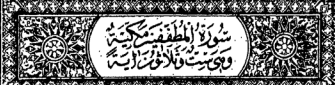 سُورَةُ الْمُطَفِّفِينَ مَكِّيَّةٌ
وَهِيَ سِتٌّ وَثَلَاثُونَ آيَةً